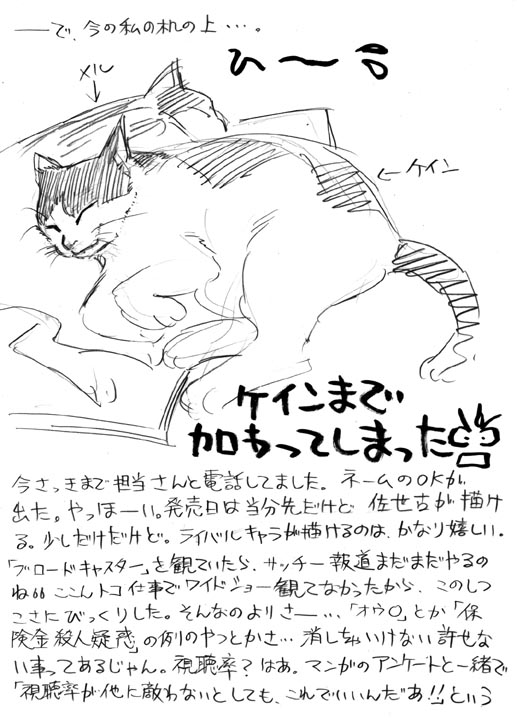 ――で、今の私の机の上…。
ひ〜
メル
ケイン
ケインまで
加わってしまった
今さっきまで担当さんと電話してました。ネームのOKが
出た。やっほーい。発売日は当分先だけど 佐世古が描け
る。少しだけだけど。ライバルキャラが描けるのは、かなり嬉しい。
「ブロードキャスター」を観ていたら、サッチー報道まだまだやるの
ね。ここんトコ仕事でワイドショー観てなかったから、このしつ
こさにびっくりした。そんなのよりさー…、「オウ〇」とか「保
険金殺人疑惑」の例のやつとかさ…消しちゃいけない許せな
い事ってあるじゃん。視聴率？はあ。マンガのアンケートと一緒で
「視聴率が他に敵わないとしても、これでいいんだあ!!」という